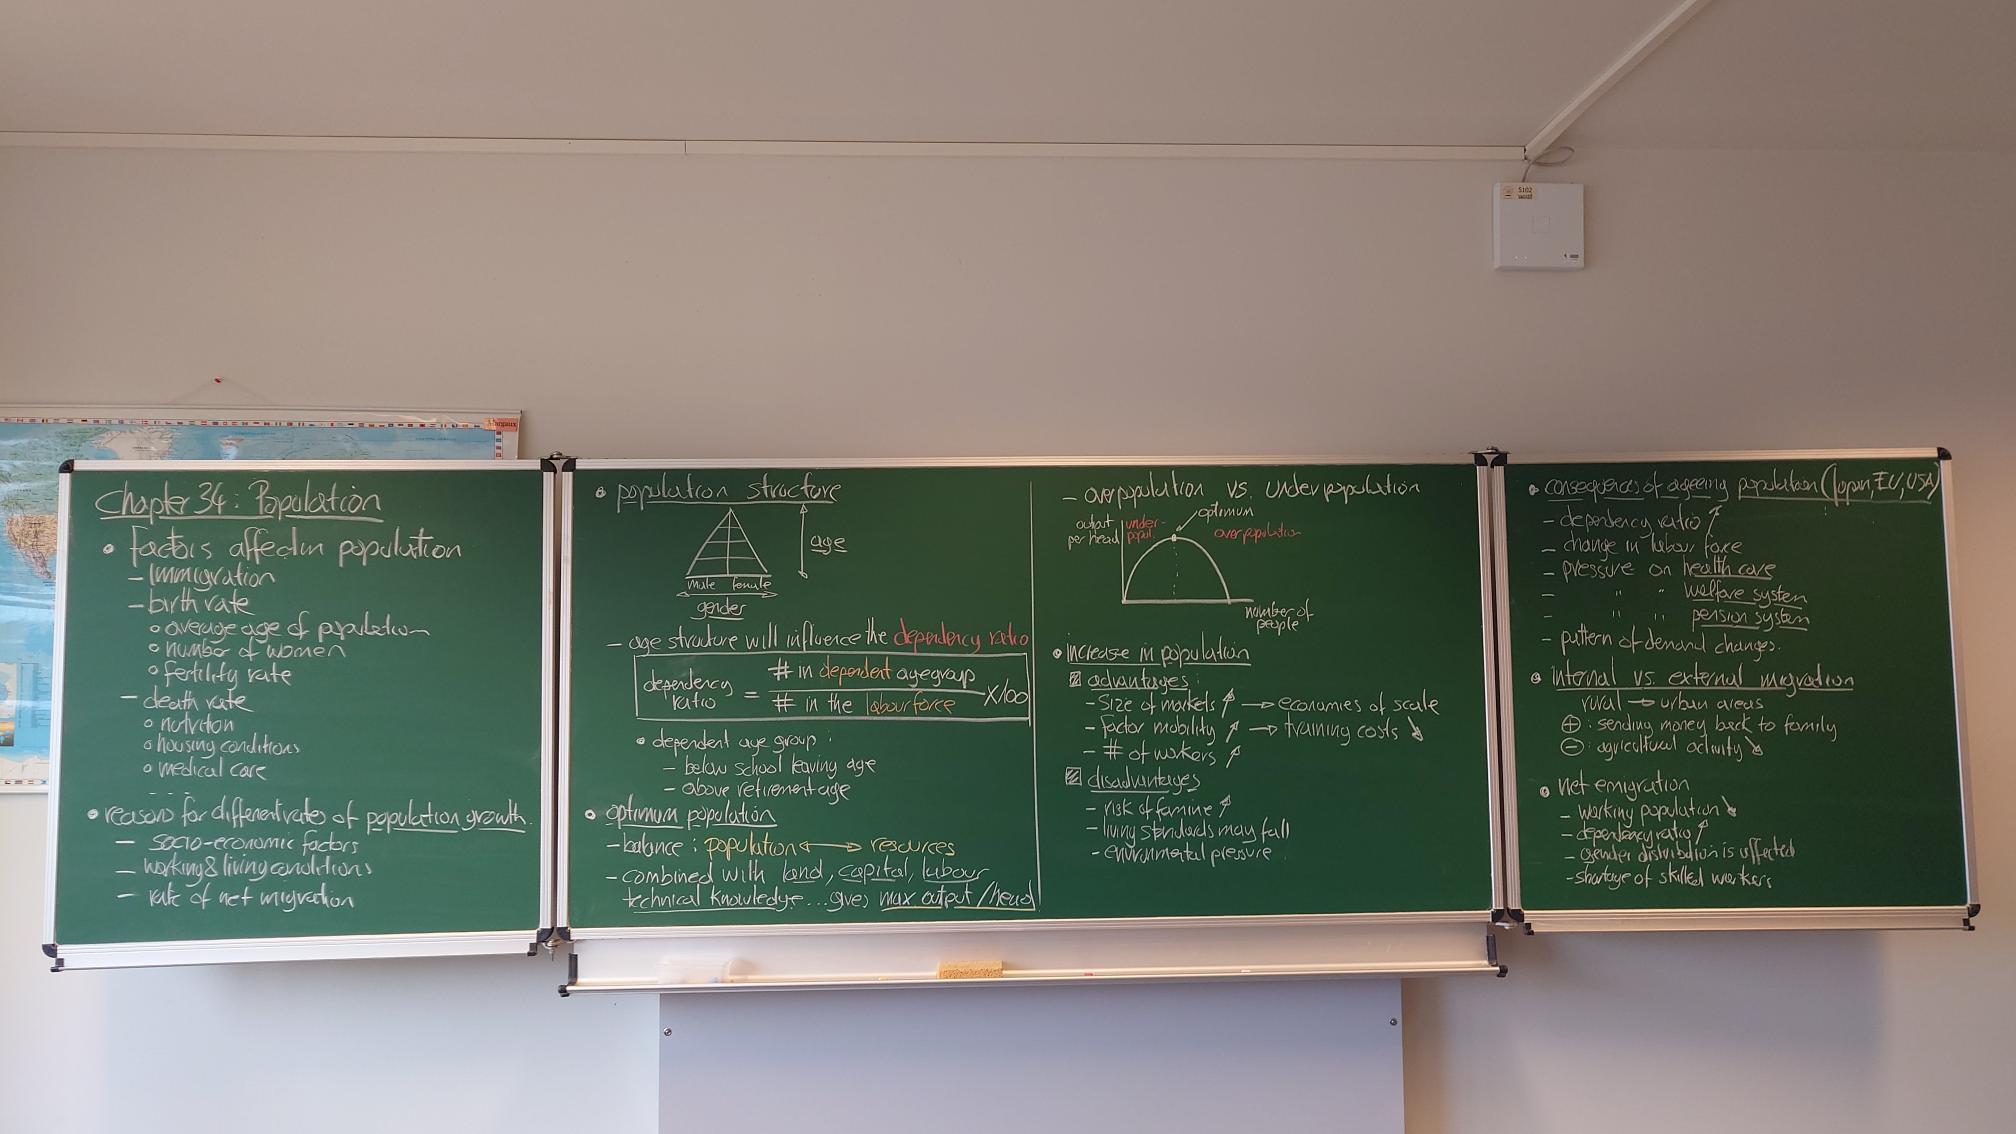 Chapter 34: Population
• Factors affectin population
- Immigration
- birth rate
o average age of population
o number of women
o fertility rate
- death rate
o nutriton
o housing conditions
o medical care
- - -
• reasons for different rates of population growth.
- socio-economic factors
- working & living conditions
- rate of net migration
• population structure
age
male female
gender
- age structure will influence the dependency ratio
dependency ratio = # in dependent agegroup / # in the labour force X100
• dependent age group:
- below school leaving age
- above retirement age
• optimum population
- balance: population ↔ resources
- combined with land, capital, labour
technical knowledge... gives max output/head
- overpopulation vs. underpopulation
optimum
output per head
under-popul.
overpopulation
number of people
• increase in population
advantages:
- Size of markets ↑ → economies of scale
- factor mobility ↑ → training costs ↘
- # of workers ↑
disadvantages
- risk of famine ↑
- living standards may fall
- environmental pressure
• consequences of ageeing population (Japan, EU, USA)
- dependency ratio ↑
- change in labour force
- pressure on health care
- " " welfare system
- " " pension system
- pattern of demand changes.
• internal vs. external migration
rural → urban areas
⊕: sending money back to family
⊖: agricultural activity ↘
• net emigration
- working population ↘
- dependency ratio ↑
- gender distribution is affected
- shortage of skilled workers
5102